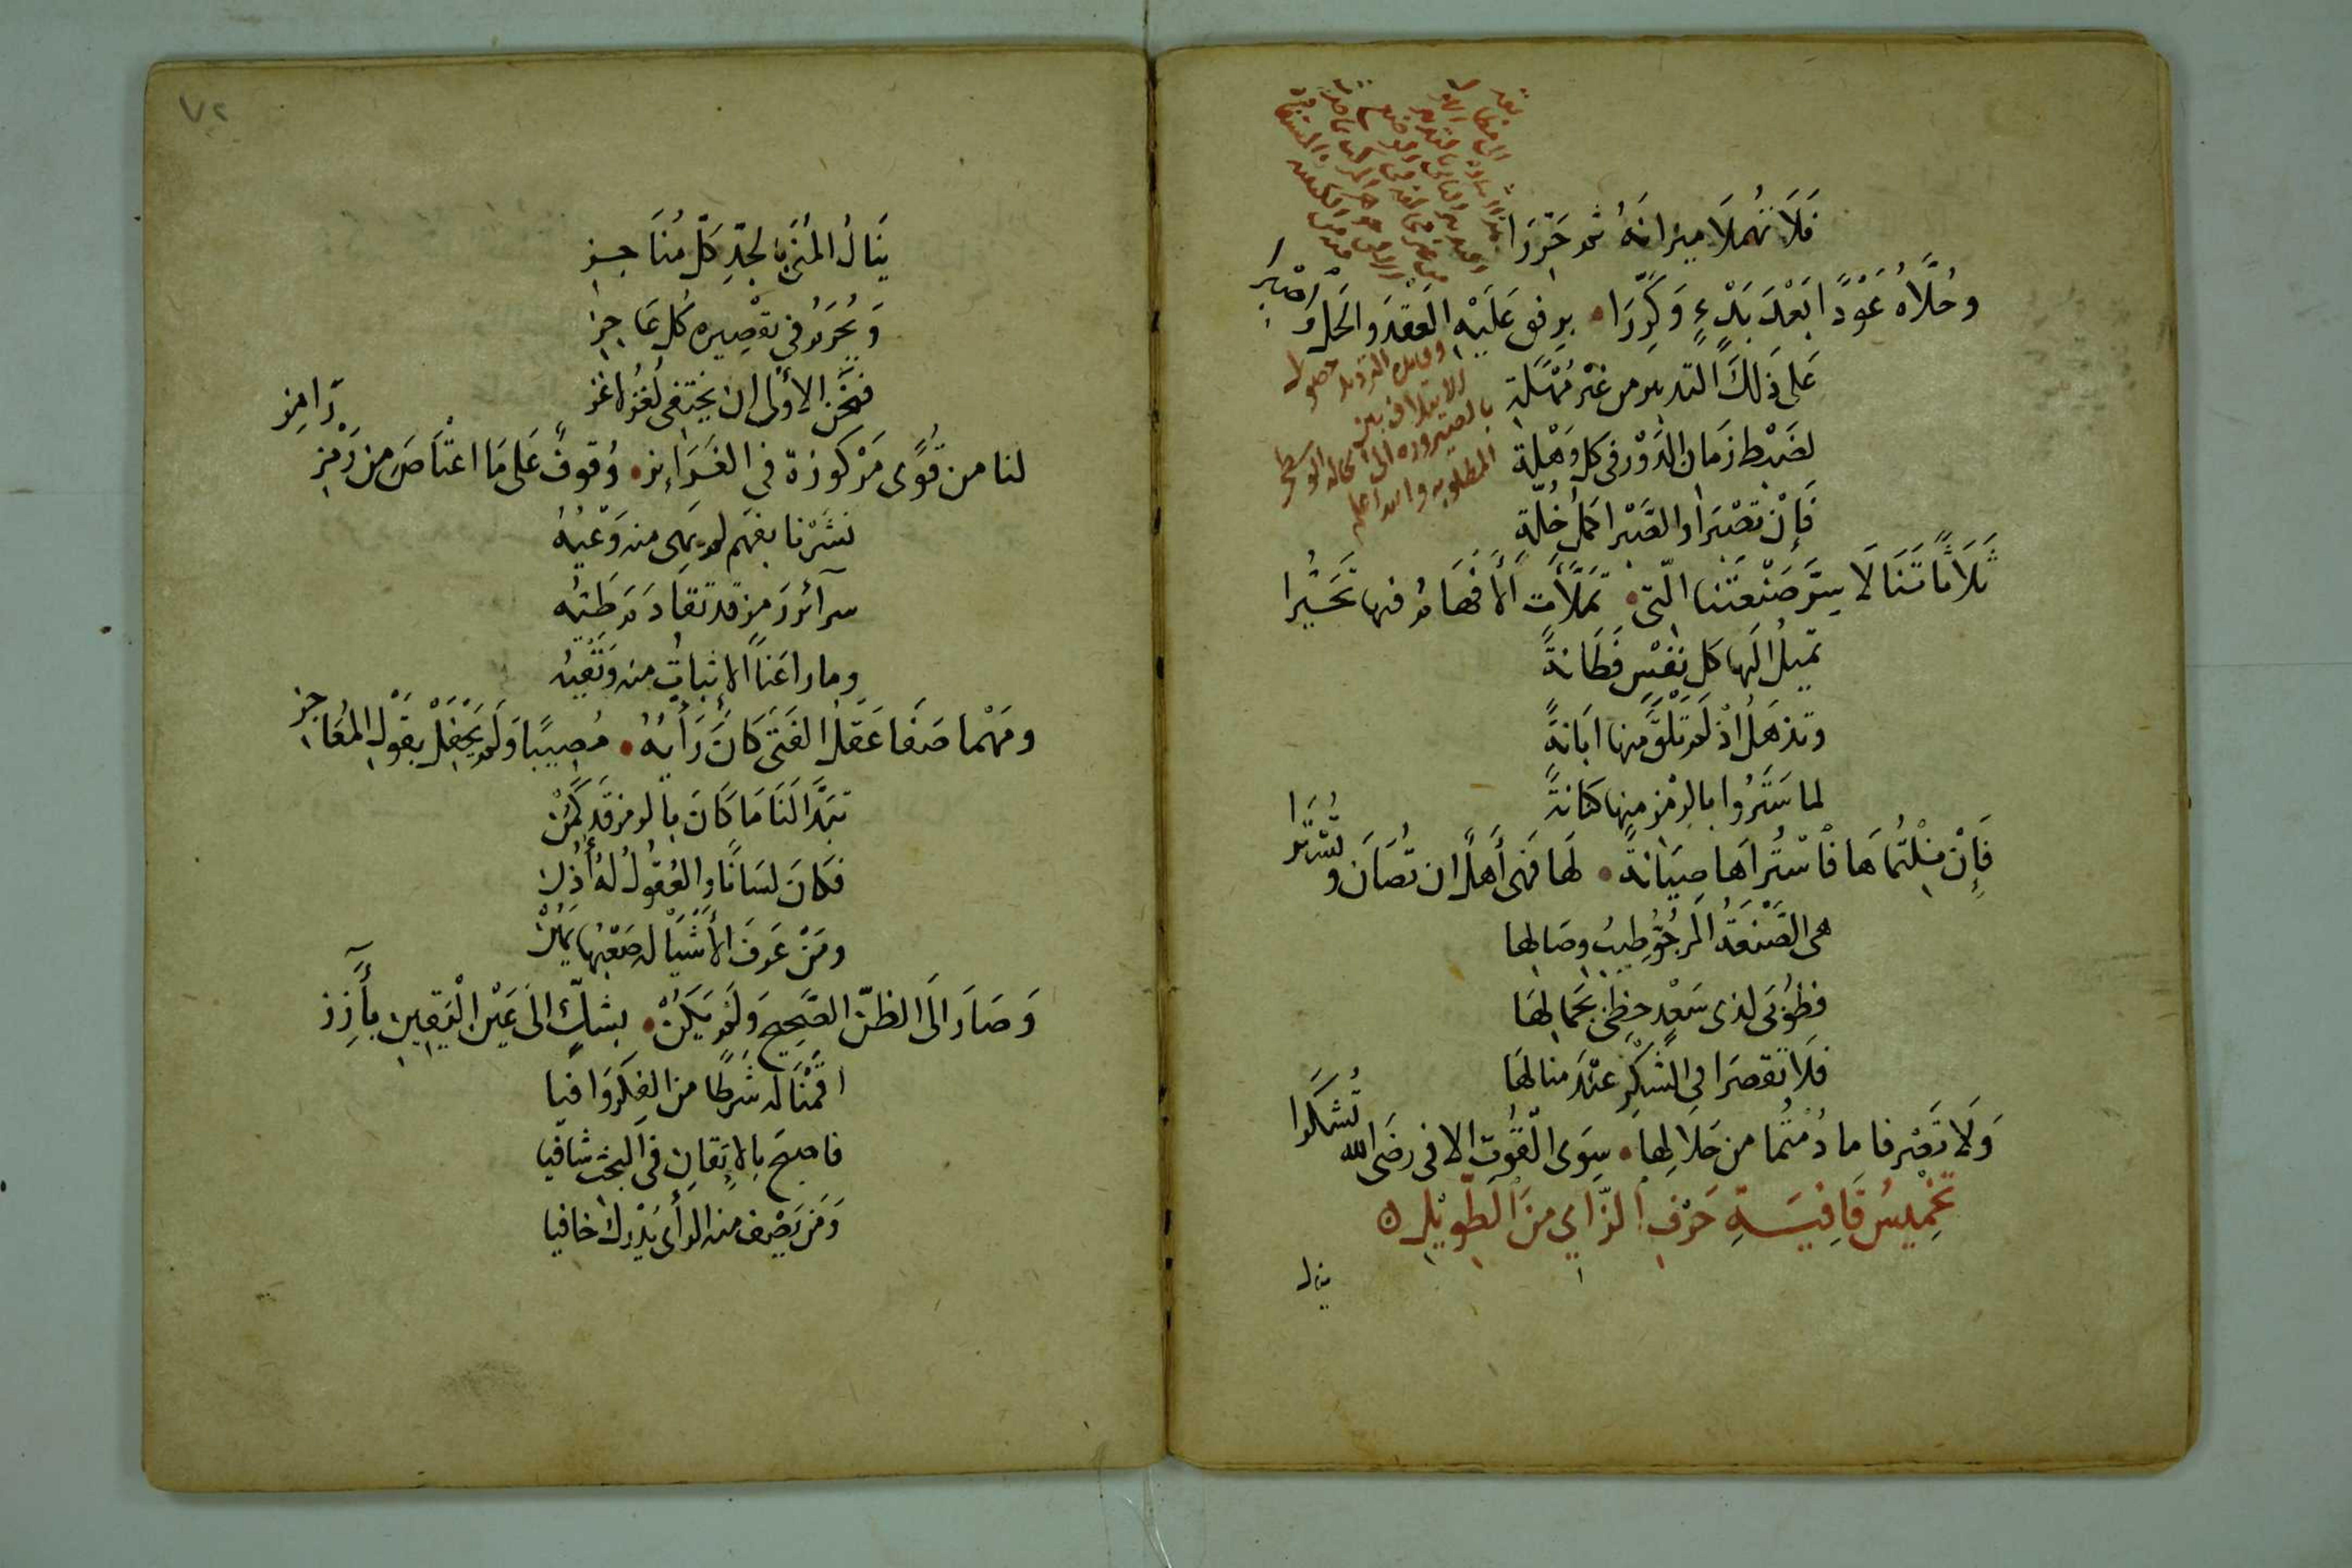 فَلَا تُهْمِلَا مِيزَانَهُ ثُمَّ حَرِّرَا
وحُلَّاهُ عَوْدًا بَعْدَ بَدْءٍ وَكَرِّرَا ۰ برفق عَلَيْهِ العَقْدَ وَالحَلَّ
عَلى ذلِكَ التدبير من غَيْر مُهْلَةٍ
لضَبْط زمَان الدَّوْر في كل وَهْلَةٍ
فَإِنْ تصْبِرَا والصَّبْر أكمل خُلَّةٍ
ثَلَاثًا تَنَالَا سِرَّ صَنْعَتنَا الّتى ۰ تَمَلَّأتِ الأَفْهَامُ فيها تَحَيُّرا
تميلُ الَيها كل نفْسٍ فَطَانةً
وتذهَلُ اذْ لَمْ تَلْقَ منها ابَانةً
لما سَتَرُوا بالرمْز منها كنانةً
فَإِنْ نِلْتُمَاهَا فَاسْتُرَاهَا صِيَانةً ۰ لهَا فهى أَهلٌ ان تُصَانَ و تُسْتَرَا
هى الصَّنْعَةُ المَرجُوُّ طِيبُ وصَالها
فطُوْبَى لذى سَعْدٍ حظِىْ بجَمَالِهَا
فلَا تقصرَا فى الشكْرِ عنْدَ منالهَا
وَلَا تَصْرفا ما دُمْتُما من حَلالِهَا ۰ سِوَى القُوْت الا فى رضَى الله تُشْكَرا
تَخْمِيسُ قَافِيَةِ حَرْفِ الزَّايِ مِنَ الطَّوِيْلِ
ينال
وقابل التزويد حصول
بالصيرورة الى الحالة الوسطى
المطلوبه والله اعلم
٧٢
يَنَالُ المُنَى بالجدِّ كلّ مُنَاجِزِ
وَيُحْرَمُ في تقْصِيره كُل عَاجِزِ
فنَحْن الأوْلى ان يختفى لُغْز لاغز
لنا من قُوًى مَرْكوزة في الغَرَائِز ۰ وُقوفٌ عَلى مَا اعْتَاصَ من رَمْزِ رَامِزِ
نشَرْنا بفهَم لم يهى منه وَعْيُهُ
سرآئر رَمز قد تقادَمَ طَيّه
وما راعَنا الإثباتُ منه وَنَفْيُه
ومَهْما صَفَا عَقلُ الفَتَى كَانَ رَأيُهُ ۰ مُصِيبًا وَلَم يَحْفِلْ بقَوْلِ المُعَاجِزِ
تبَدَّا لَنَا مَا كَانَ بالرمز قَد كَمَنْ
فكَانَ لسَانًا والعُقُولُ لهُ أُذُن
ومَنْ عَرفَ الأَشْيَا له صَعْبُها يَهُنْ
وَصَارَ الَى الظنّ الصَّحِيح وَلَمْ يَكُنْ ۰ بشكٍّ الَى عَيْن الْيَقِينِ بأَرِزِ
اقمْنَا له شرْطًا من الفكر وَافيا
فاصْبحَ بالإِتقانِ في البَحْث شافيا
وَمَن يَصْرف منه الرأى يُدْرك خافيا